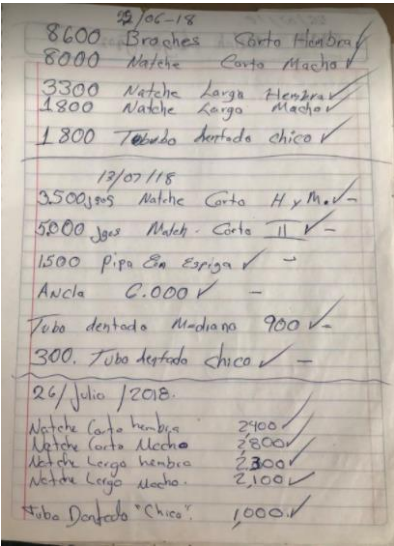 22/06-18
8600 Broches Corto Hembra ✓
8000 Natche Corto Macho ✓
3300 Natche Largo Hembra ✓
1800 Natche Largo Macho ✓
1800 Tubudo dentado chico ✓
13/07/18
3.500 jgos Natche Corto H y M. ✓ -
5.000 Jgos Match. Corto II ✓ -
1500 Pipa En Espiga ✓ -
Ancla 6.000 ✓ -
Tubo dentado Mediano 900 ✓ -
300. Tubo dentado chico ✓ -
26/Julio/2018.
Natche Corto hembra 2,400 ✓
Natche Corto Macho 2,800 ✓
Natche Largo hembra 2,300 ✓
Natche Largo Macho. 2,100 ✓
Tubo Dentado "Chico". 1,000. ✓